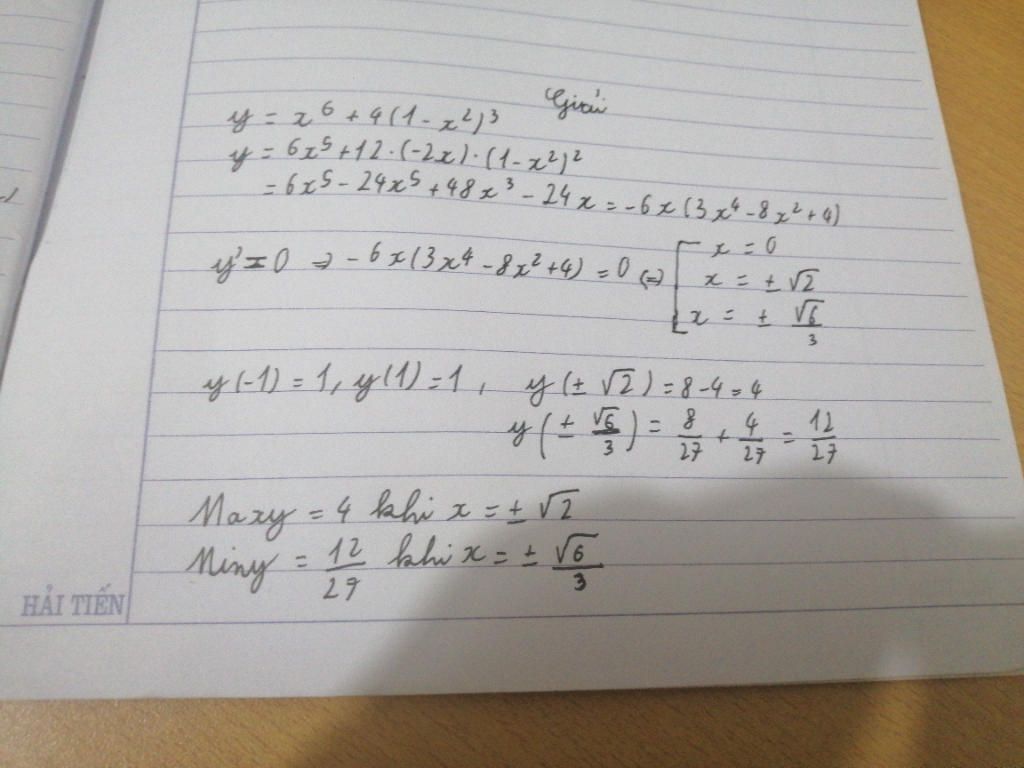 Giải
y = x⁶ + 4(1 - x²)³
y = 6x⁵ + 12 · (-2x) · (1 - x²)²
= 6x⁵ - 24x⁵ + 48x³ - 24x = -6x(3x⁴ - 8x² + 4)
y' = 0 ⇒ -6x(3x⁴ - 8x² + 4) = 0 (=) [ x = 0
x = ± √2
x = ± √6/3
y(-1) = 1, y(1) = 1, y(± √2) = 8 - 4 = 4
y(± √6/3) = 8/27 + 4/27 = 12/27
Maxy = 4 khi x = ± √2
Miny = 12/29 khi x = ± √6/3
HẢI TIẾN